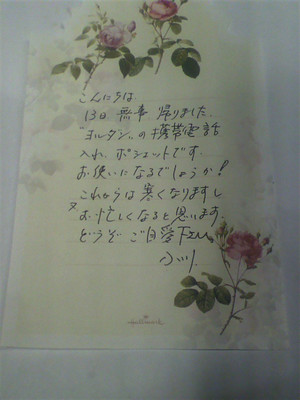 こんにちは
13日 無事 帰りました。
"ヨルダン"の携帯電話
入れ ポシェットです。
お使いになるでしょうか!
これからは寒くなりますし
又
お忙しくなると思います。
どうぞ ご自愛下さい
Hallmark